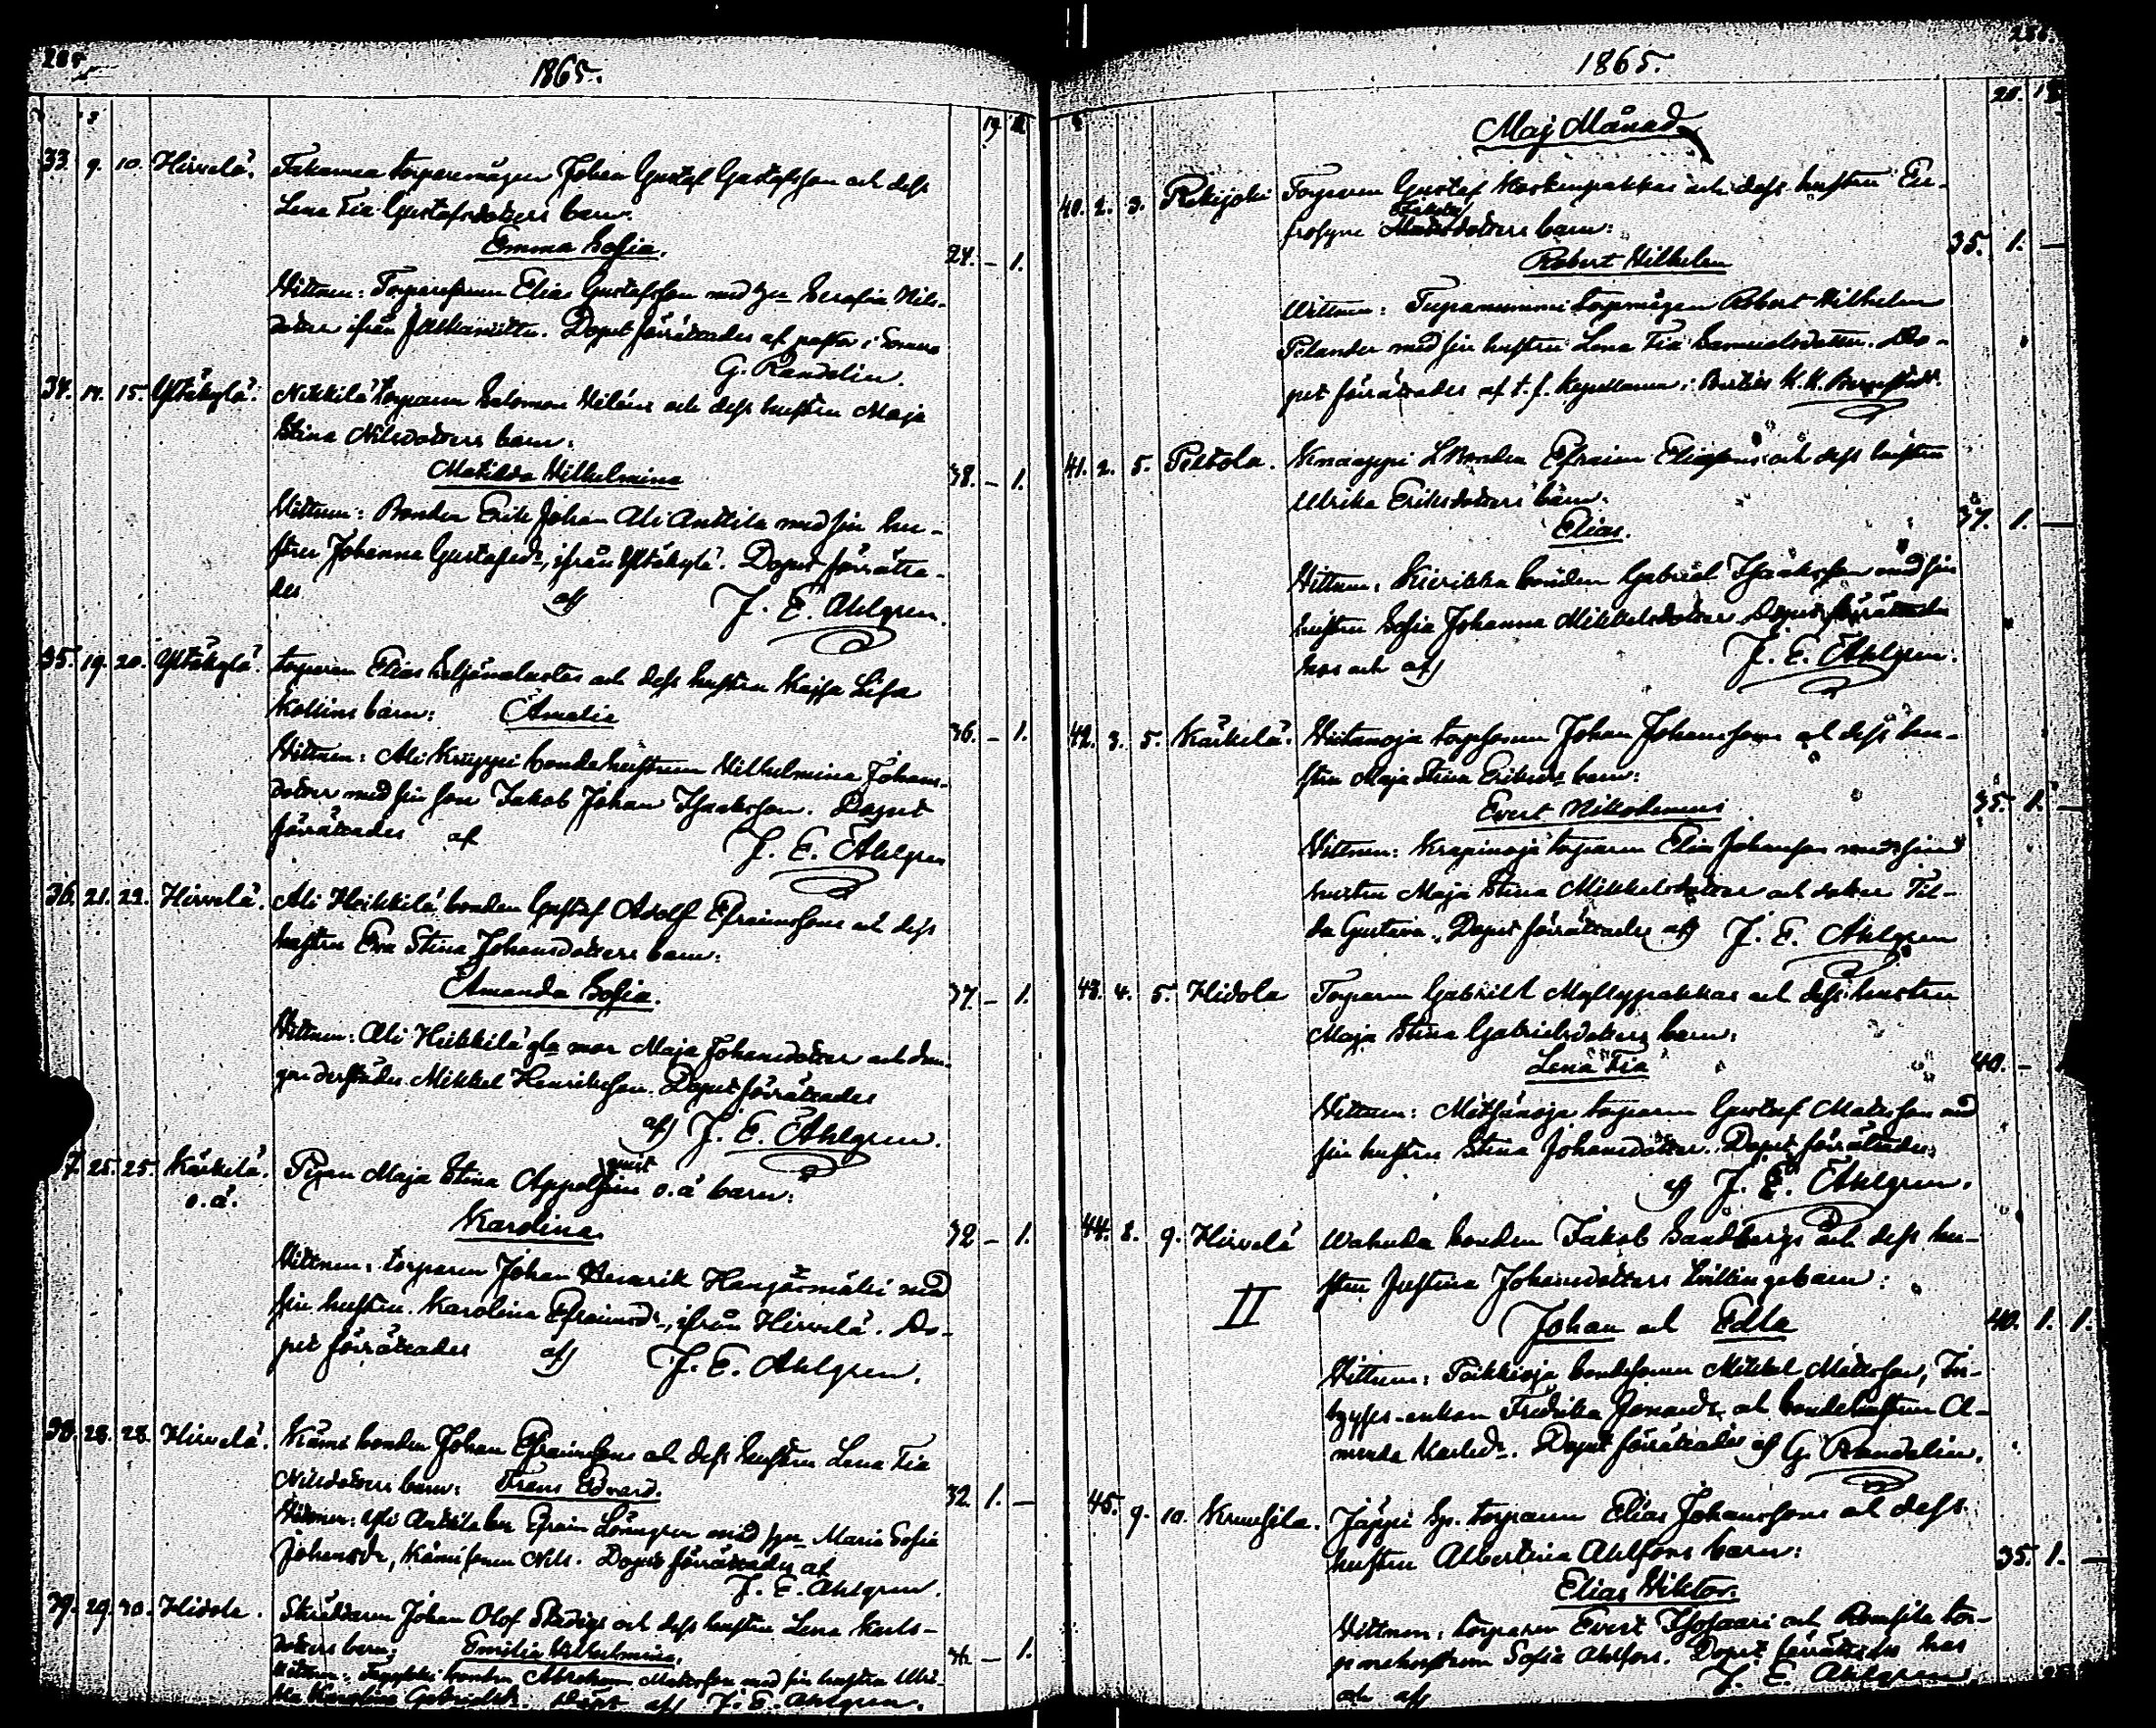 285
1865.
19 20
33. 9. 10. Hirvelä. torparemågen Johan Gustaf Gustafsson och dess
Lena Fia Gustafsdotters barn:
Emma Sofia. 24. – 1.
Vittnen: Elias Gustafsson med hu Serafia Nils-
dotter ifrån. Dopet förrättades af pastor i Somero
G. Randelin.
34. 14. 15. Yltäkylä. Nikkilä torparen Salomon och dess hustru Maja
Stina Nilsdotters barn:
Matilda Vilhelmina 38. – 1.
Vittnen: Bonden Erik Johan Ali Anttila med sin hu-
stru Johanna Gustafsdr, ifrån Yltäkylä. Dopet förrätta-
des af J. E. Ahlgren.
35. 19. 20. Yltäkylä. torparen Elias och dess hustru Kajsa Lisa
Kollins barn: Amalia 36. – 1.
Vittnen: Ali Krüppi bondehustrun Vilhelmina Johans-
dotter med sin son Jakob Johan Isaaksson. Dopet
förrättades af J. E. Ahlgren
36. 21. 22. Hirvelä. Ali Heikkilä bonden Gustaf Adolf Efraimssons och dess
hustru Eva Stina Johansdotters barn:
Amanda Sofia. 37. – 1.
Vittnen: Ali Heikkilä gla mor Maja Johansdotter och drän-
gen derstädes Mikkel Henriksson. Dopet förrättades
af J. E. Ahlgren.
7. 25. 25. Kärkelä. Pigan Maja Stina Appelqvist o.ä barn:
o.ä.
Karolina. 32 – 1.
Vittnen: torparen Johan Henrik Hanjärmäki med
sin hustru Karolina Efraimsdr, ifrån Hirvelä. Do-
pet förrättades af J. E. Ahlgren.
38. 28. 28. Hirvelä. Kämi bonden Johan Efraimssons och dess hustru Lena Fia
Nilsdotters barn: Frans Edvard. 32. 1. –
Vittnen: Yli Anttila Efraim Löungren med hu Maria Sofia
Johansdr, Kämi sonen Nils. Dopet förrättades af
J. E. Ahlgren.
39. 29. 30. Hidola. Skräddaren Johan Olof Stadigs och dess hustru Lena Karls-
dotters barn: Emilia Vilhelmina. – 1.
Vittnen: bonden Abraham Matsson med sin hustru Ulri-
ka Karolina Gabrielsdr. Döpt af J. E. Ahlgren.
286.
1865.
20. 19
Maj Månad
40. 2. 3. Rekijoki Torparen Gustaf Koskenpakkas och dess hustru Eu-
frosyne dotters barn: 35. 1. –
Robert Vilhelm
Vittnen: torpmågen Robert Vilhelm
Pelander med sin hustru Lena Fia Samuelsdotter. Do-
pet förrättades af t. f. kapellanen i K. K.
41. 2. 5. Peltola. bonden Efraim Eliassons och dess hustru
Ulrika Eriksdotters barn:
Elias. 37. 1. –
Vittnen: Kierikka bonden Gabriel Isaaksson med sin
hustru Sofia Johanna Mikkelsdotter. Dopet förrättades
hos och af J. E. Ahlgren.
42. 3. 5. Kärkelä. Viitanoja torpsonen Johan Johanssons och dess hu-
stru Maja Stina Eriksdr barn:
Evert Nikodemus 35. 1. –
Vittnen: Krapinoja torparen Elias Johansson med sin
hustru Maja Stina Mikkelsdotter och dotter Til-
da Gustava. Dopet förrättades af J. E. Ahlgren
43. 4. 5. Hidola Torparen Gabriel Myllypakkas och dess hustru
Maja Stina Gabrielsdotters barn:
Lena Fia 40. –
Vittnen: Metsänoja torparen Gustaf Matsson med
sin hustru Stina Johansdotter. Dopet förrättades
af J. E. Ahlgren.
44. 8. 9. Hirvelä Wahuda bonden Jakob Sandbergs och dess hu-
stru Justina Johansdotters tvillingebarn:
II Johan och Edla 40. 1. 1.
Vittnen: Poikkioja bondsonen Mikkel Matsson, In-
hyses-enkan Fredrika Jonasdr och bondehustrun A-
manda Karlsdr. Dopet förrättades af G. Randelin.
45. 9. 10. Kruusila. Jäppi Sp. torparen Elias Johanssons och dess
hustru Albertina Ahlfors barn: 35. 1. –
Elias Viktor.
Vittnen: torparen Evert Isosaari och tor-
parehustrun Sofia Ahlfors. Dopet förrättades hos
och af J. E. Ahlgren